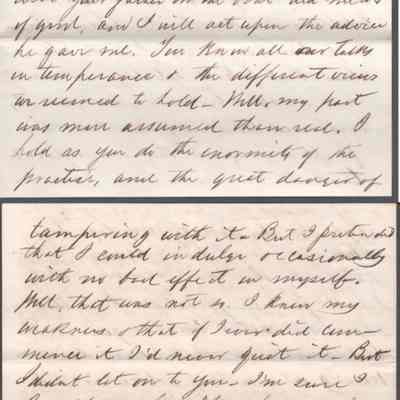 of good, and I will act upon the advice
he gave me. You know all our talks
on temperance & the different views
we seemed to hold - Well, my part
was more assumed than real. I
hold as you do the enormity of the
practice, and the great danger of
tampering with it - But I pretended
that I could indulge occasionally
with no bad effect on myself.
Well, that was not so. I knew my
weakness & that if I ever did com-
mence it I'd never quit it - But
I didn't let on to you - I'm sure I